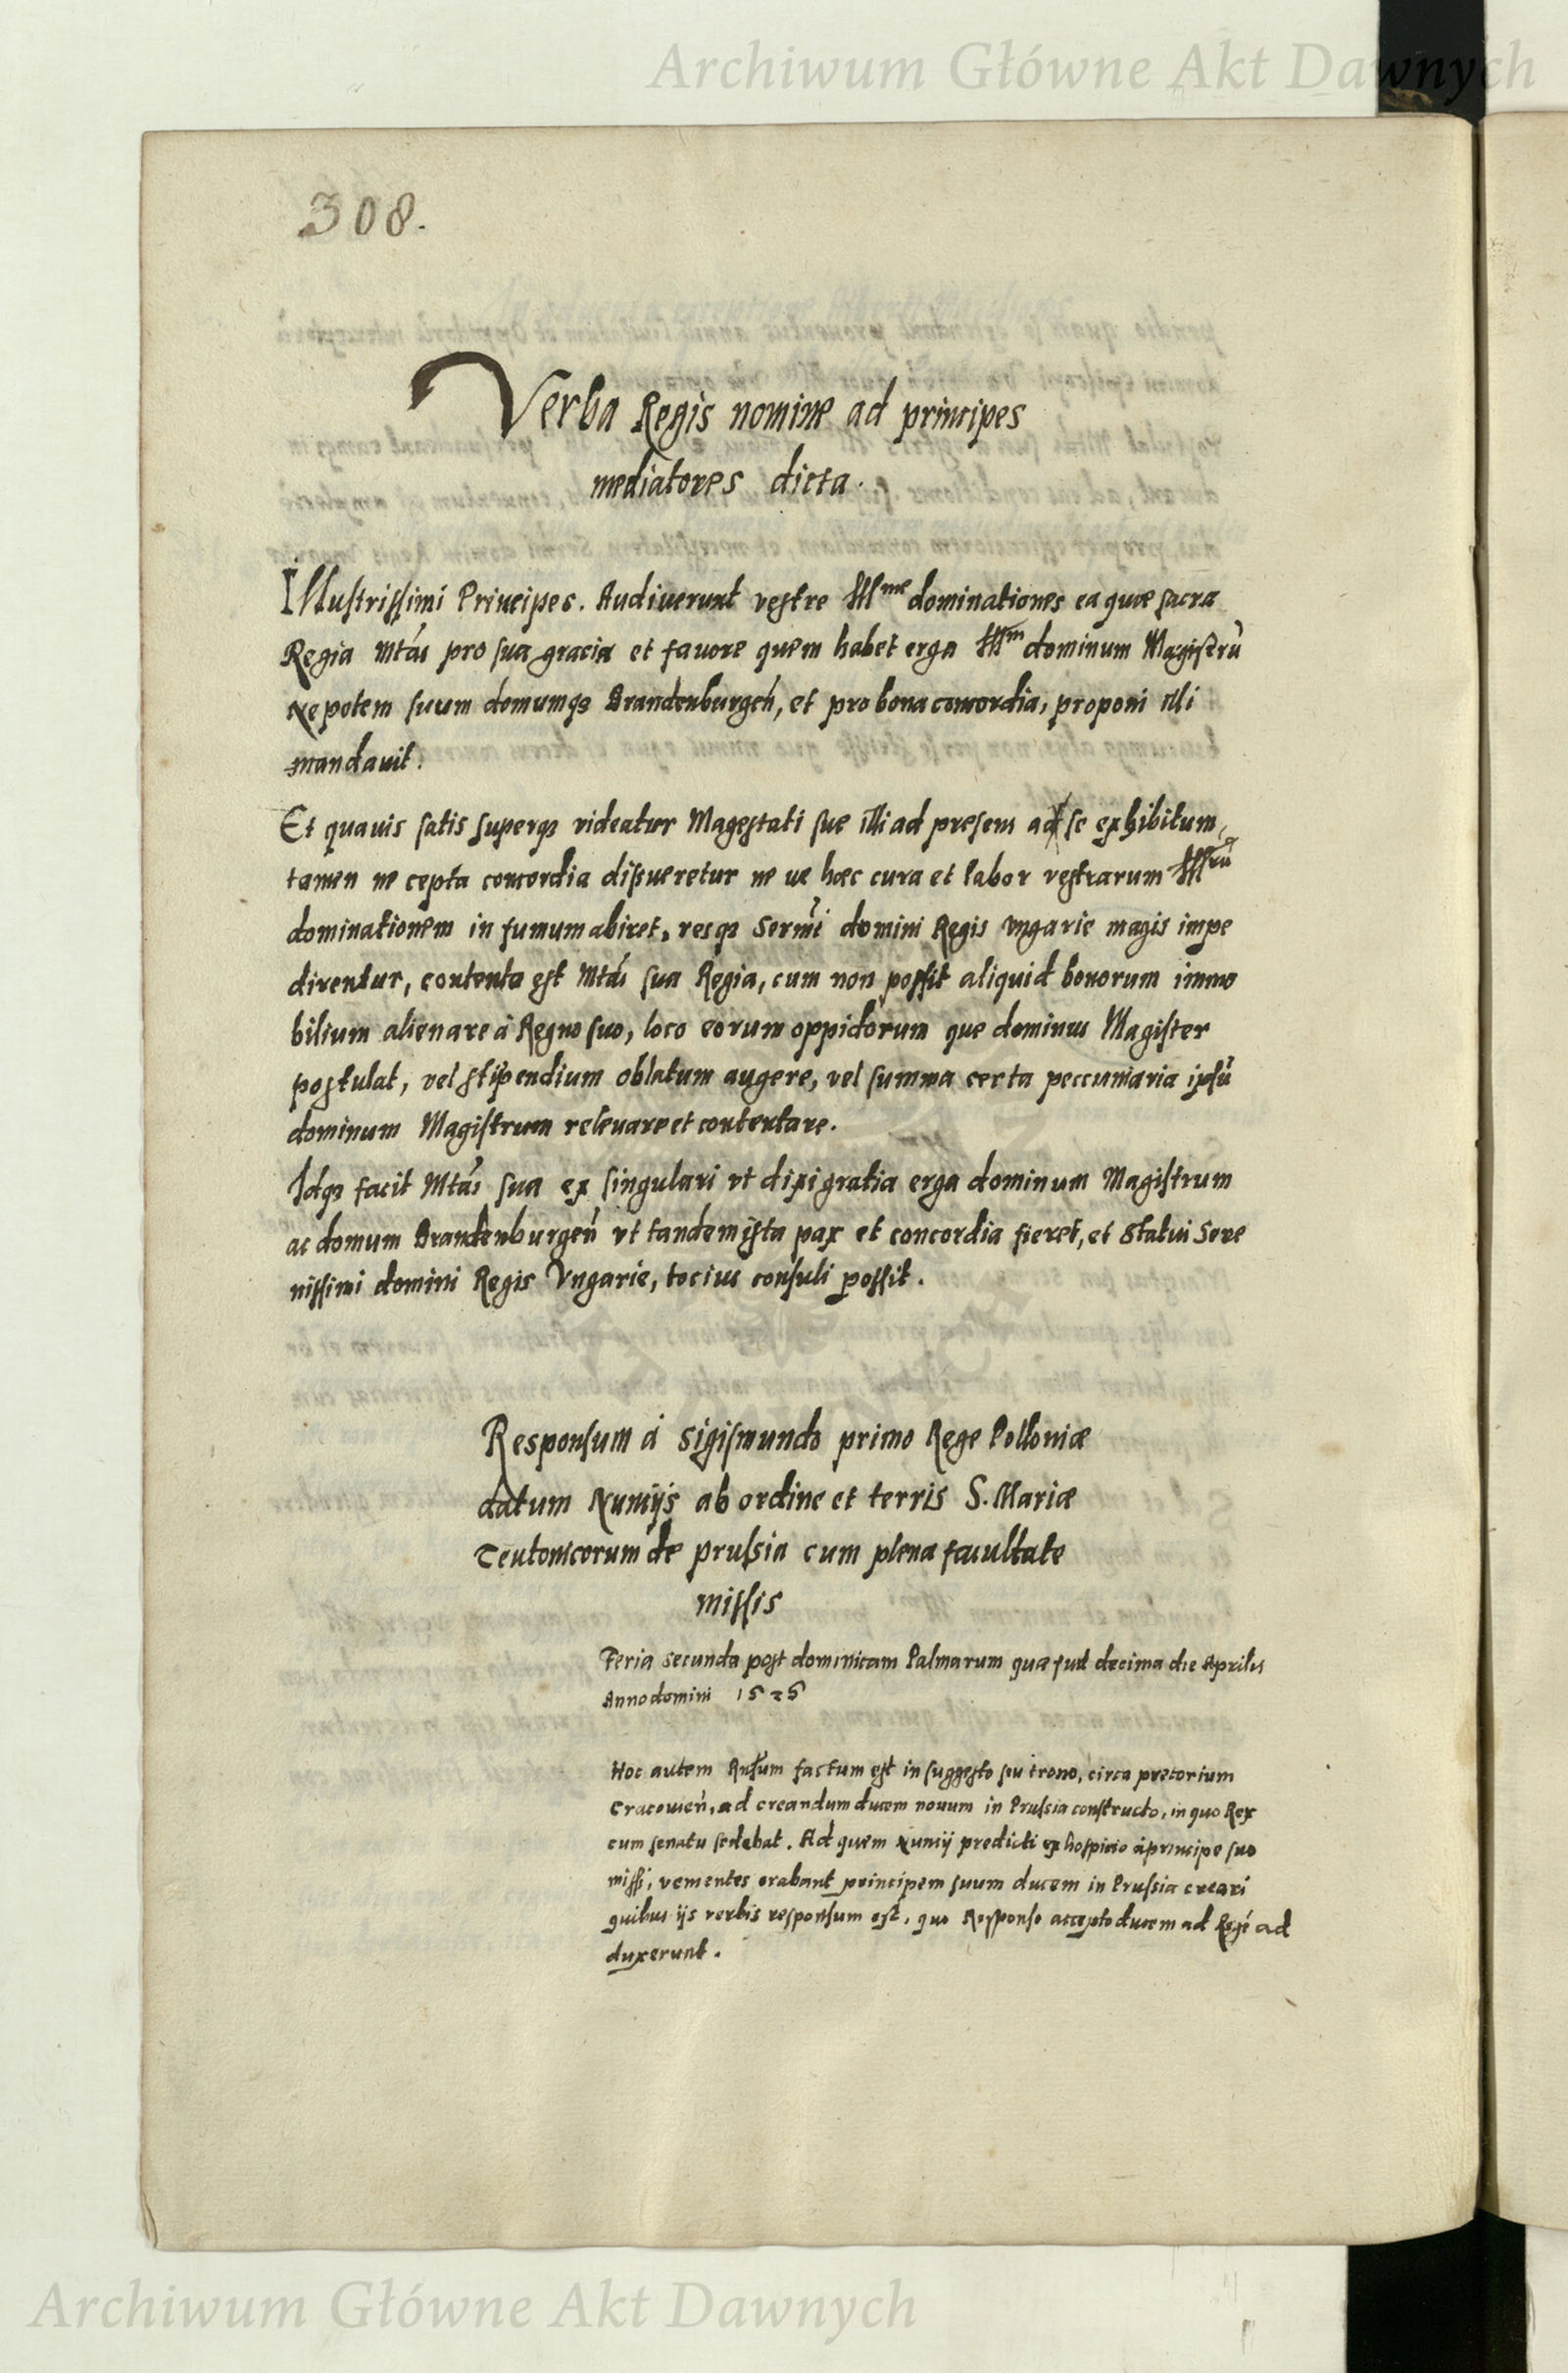 Archiwum Główne Akt Dawnych
308.
Verba Regis nomine ad principes
mediatores dicta.
Illustrissimi Principes. Audiverunt vestre Illme dominationes ea quæ sacra
Regia Mtás pro sua gracia et favore quem habet erga Illm dominum Magistrũ
Nepotem suum domumqȝ Brandenburgeñ, et pro bona concordia, proponi illi
mandavit.
Et quavis satis superqȝ videatur Magestati sue illi ad presens a se exhibitum,
tamen ne cepta concordia dissueretur ne ve hæc cura et labor vestrarum Illrũ
dominationem in fumum abiret, resqȝ Sermi domini Regis Ungarie magis impe
direntur, contenta est Mtás sua Regia, cum non possit aliquid bonorum immo
bilium alienare á Regno suo, loco eorum oppidorum que dominus Magister
postulat, vel stipendium oblatum augere, vel summa certa peccuniaria ipsũ
dominum Magistrum relevare et contentare.
Idqȝ facit Mtás sua ex singulari vt dixi gratia erga dominum Magistrum
ac domum Brandenburgeñ vt tandem ista pax et concordia fieret, et Statui Sere
nissimi domini Regis Vngarie, tocius consuli possit.
Responsum á Sigismundo primo Rege Polloniæ
datum Nuncijs ab ordine et terris S. Mariæ
Teutonicorum de prussia cum plena facultate
missis
Feria secunda post dominicam Palmarum quæ fuit decima die Aprilis
Anno domini 1525
Hoc autem Rñsum factum est in suggesto seu trono, circa pretorium
Cracovieñ, ad creandum ducem novum in Prussia constructo, in quo Rex
cum senatu sedebat. Ad quem Nuncij predicti ex hospicio á principe suo
missi, venientes orabant principem suum ducem in Prussia creari
quibus ijs verbis responsum est, quo Responso accepto ducem ad Regẽ ad
duxerunt.
Archiwum Główne Akt Dawnych